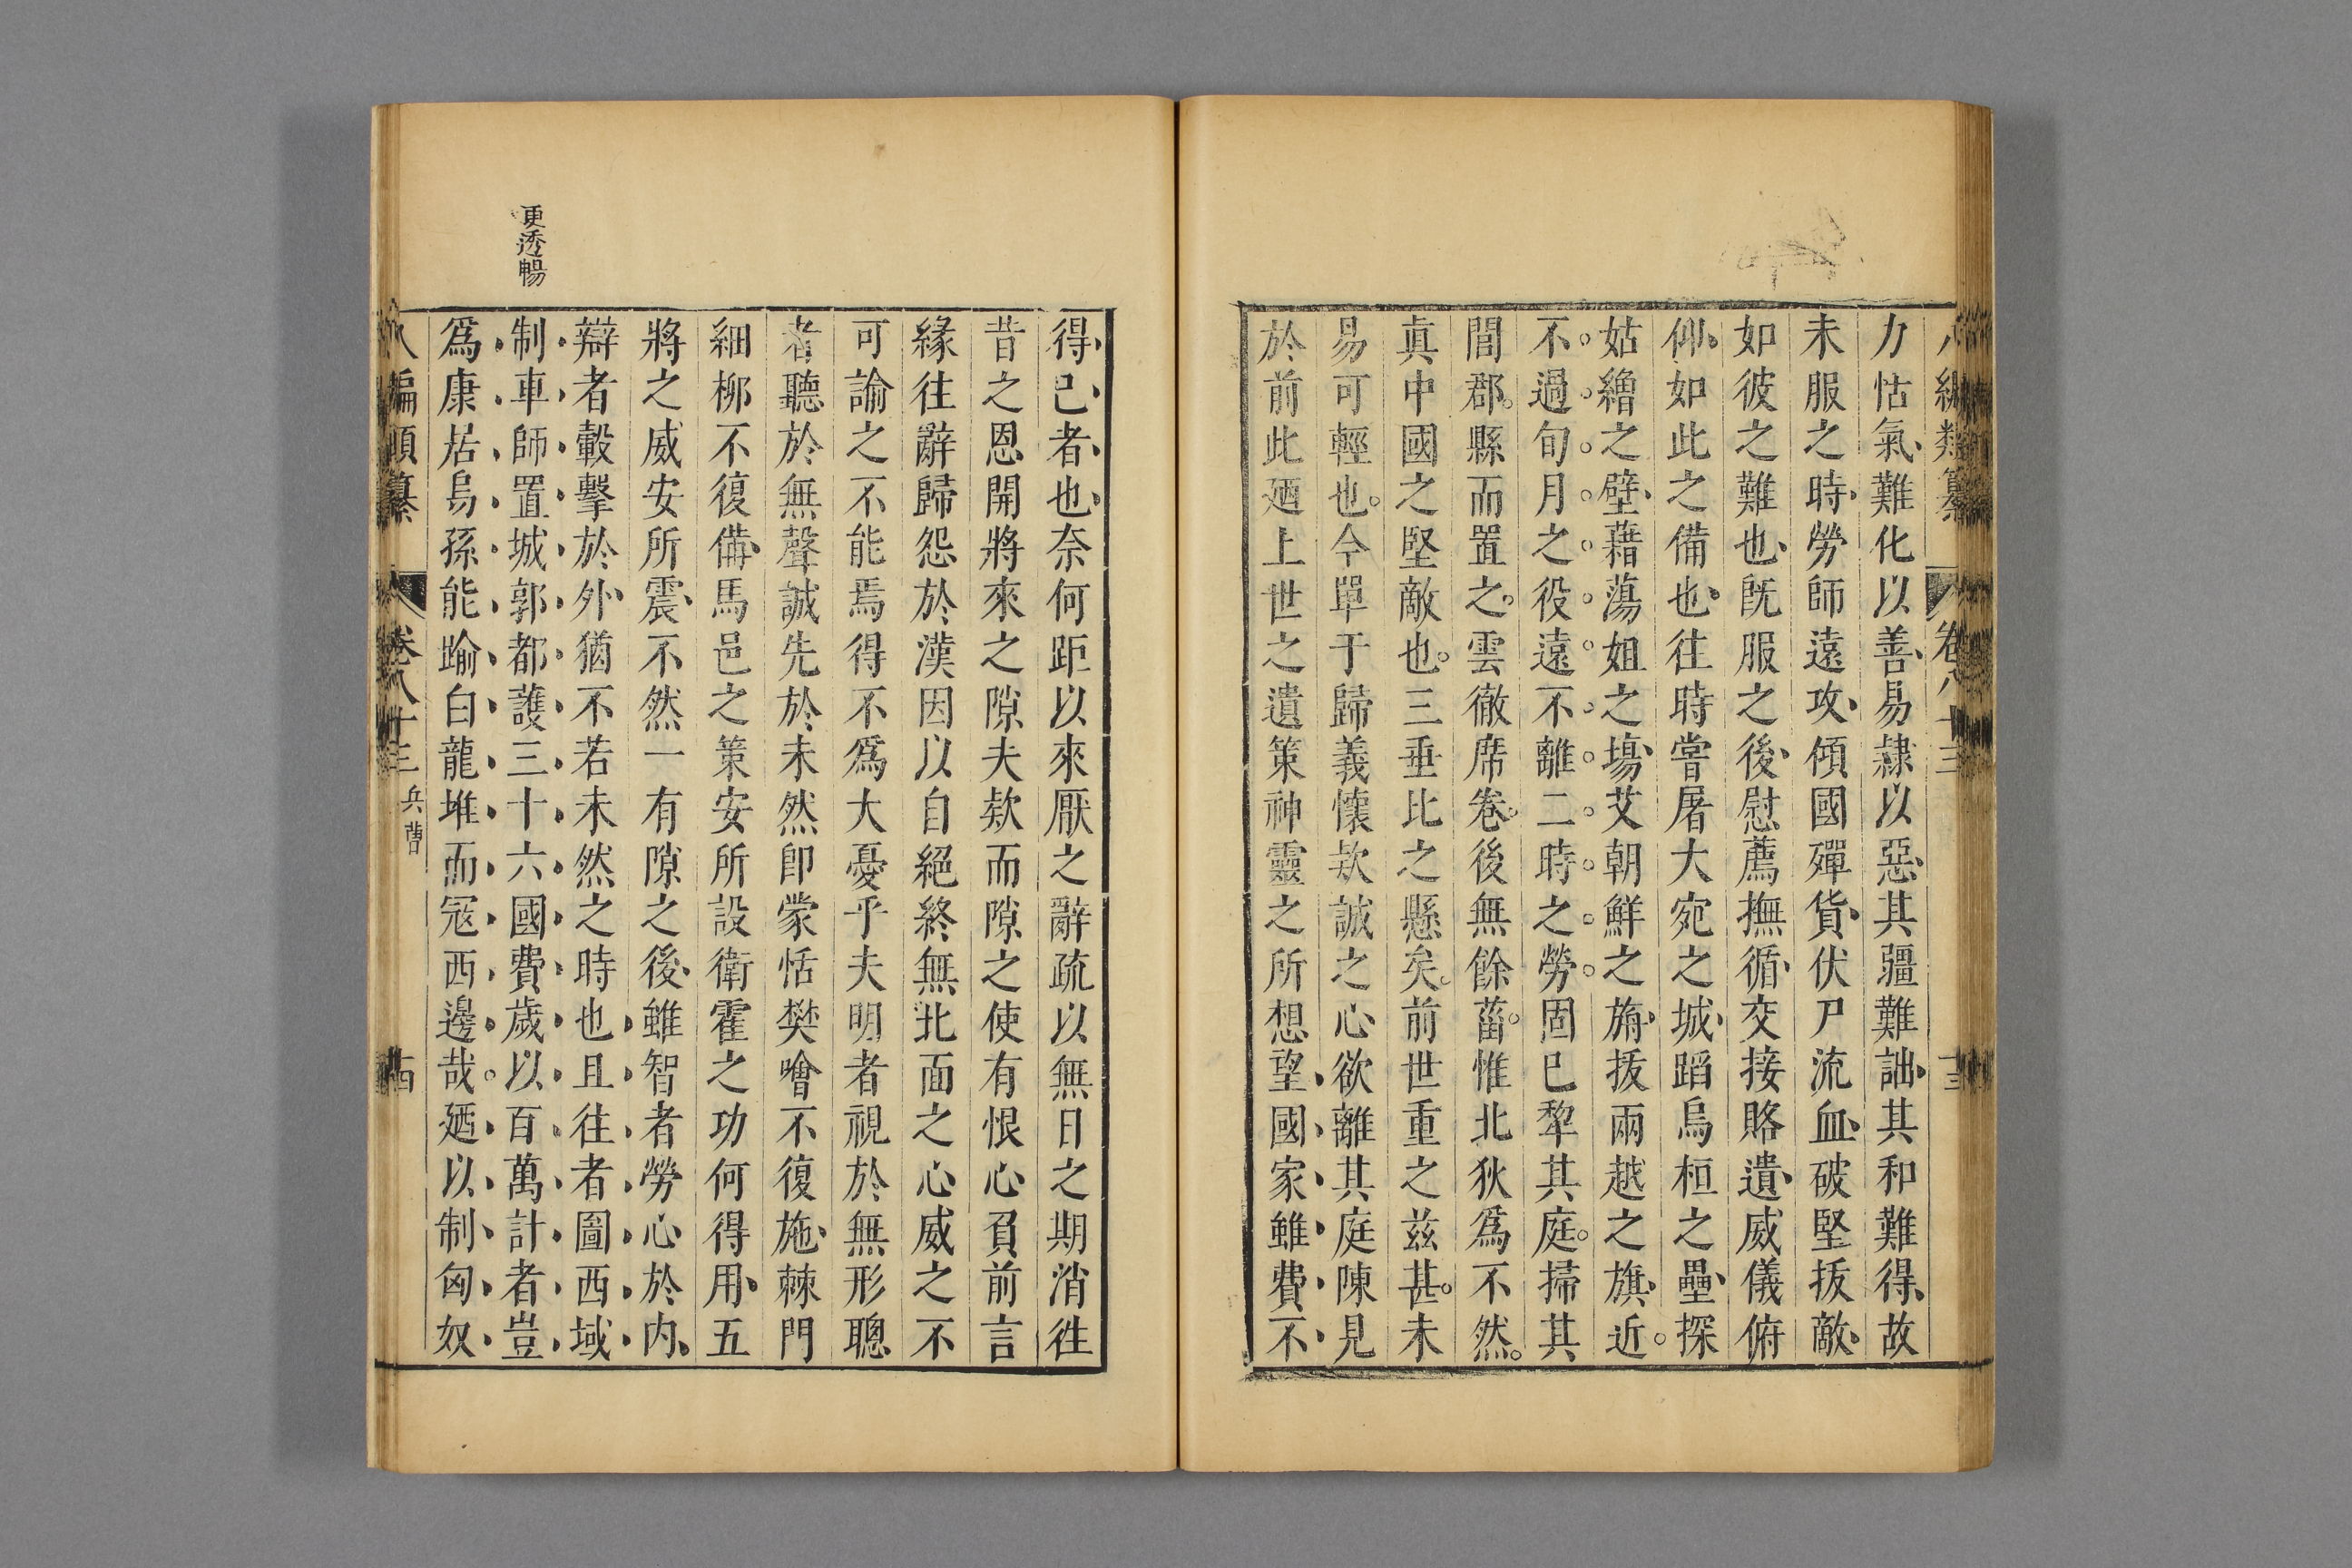 八編類纂 卷八十三 十三
力怙氣難化以善易隷以惡其疆難詘其和難得故
未服之時勞師遠攻傾國殫貨伏尸流血破堅拔敵
如彼之難也旣服之後慰薦撫循交接賂遺威儀俯
仰如此之備也往時嘗屠大宛之城蹈烏桓之壘探
姑繒之壁藉蕩姐之場艾朝鮮之旃拔兩越之旗近
不過旬月之役遠不離二時之勞固已犂其庭掃其
閭郡縣而置之雲徹席卷後無餘菑惟北狄爲不然
真中國之堅敵也三垂比之懸矣前世重之兹甚未
易可輕也今單于歸義懷欵誠之心欲離其庭陳見
於前此廼上世之遺策神靈之所想望國家雖費不
得已者也奈何距以來厭之辭疏以無日之期消徃
昔之恩開將來之隙夫欵而隙之使有恨心負前言
緣往辭歸怨於漢因以自絕終無北面之心威之不
可諭之不能焉得不爲大憂乎夫明者視於無形聰
者聽於無聲誠先於未然卽蒙恬樊噲不復施棘門
細柳不復備馬邑之策安所設衛霍之功何得用五
將之威安所震不然一有隙之後雖智者勞心於内
辯者轂擊於外猶不若未然之時也且往者圖西域
制車師置城郭都護三十六國費歲以百萬計者豈
爲康居烏孫能踰白龍堆而寇西邊哉廼以制匈奴
更透暢
八編類纂 卷八十三 兵曹 十四